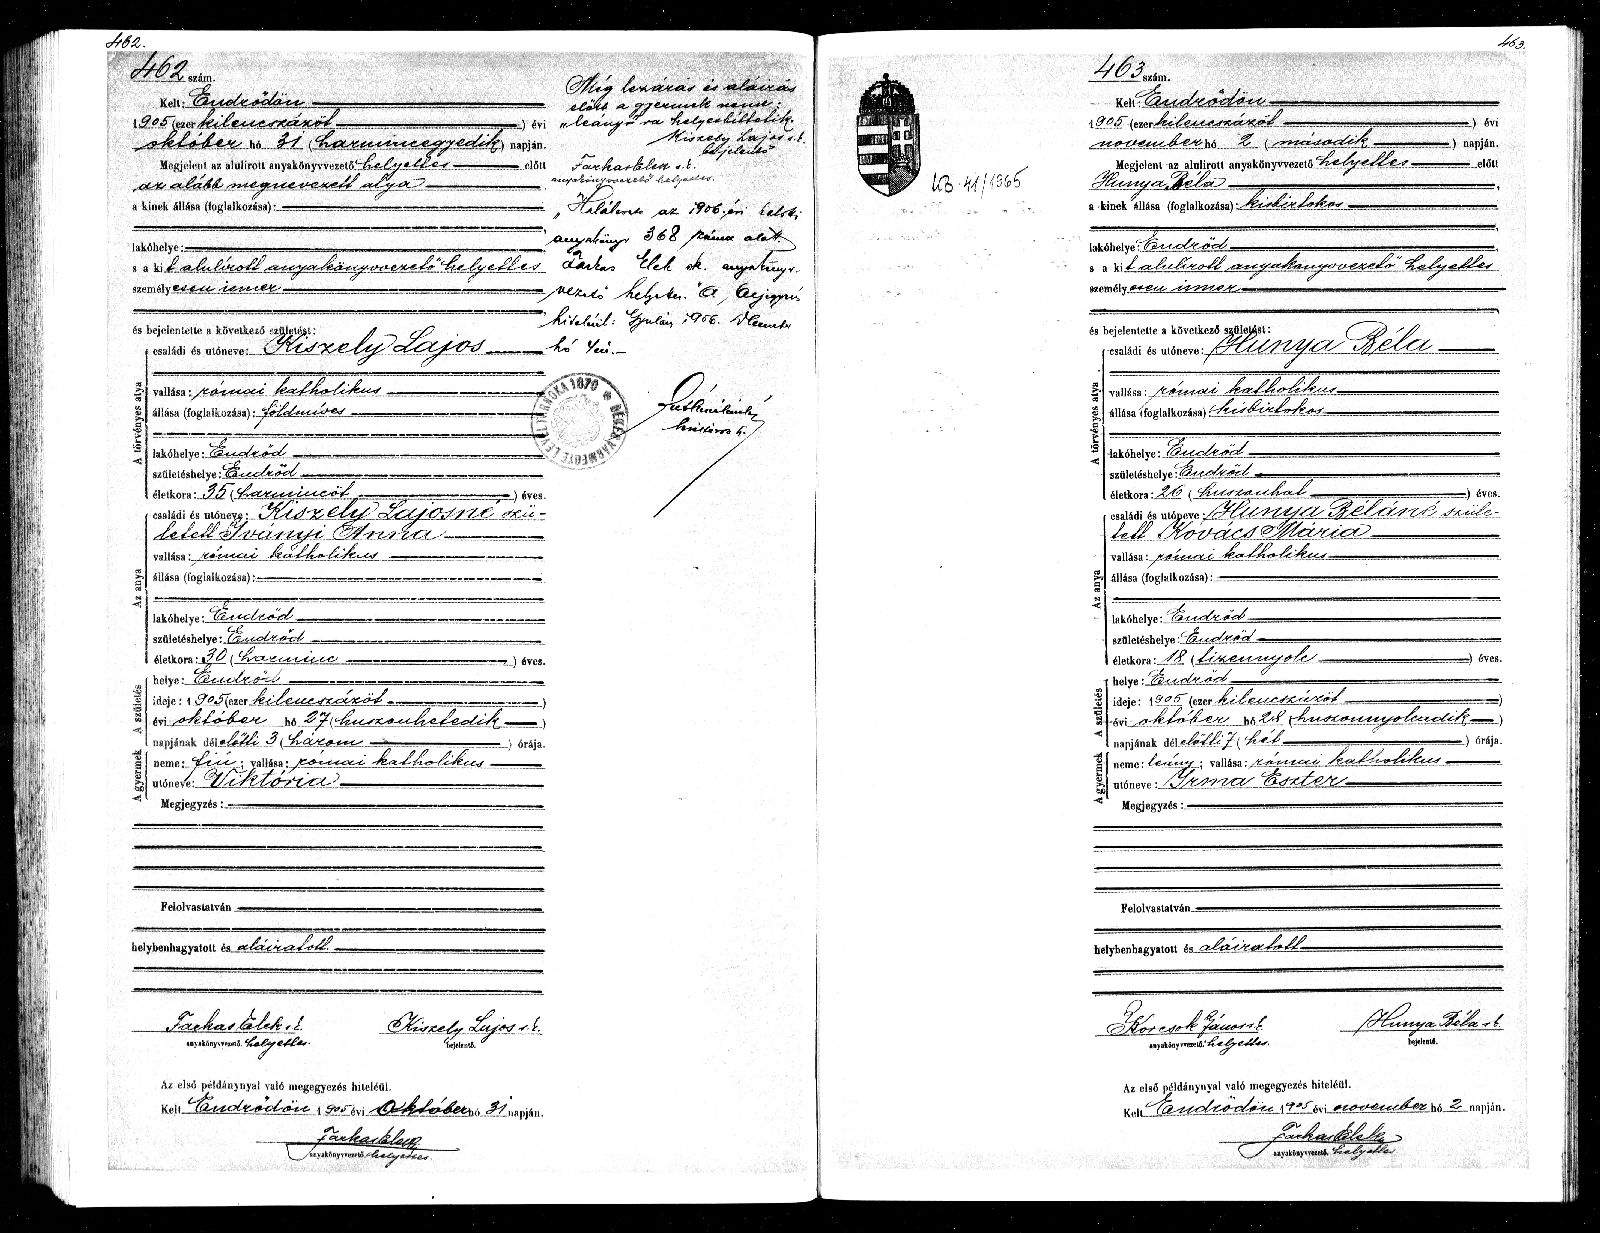 462.
462 szám.
Kelt: Endrődön
1905 (ezer kilencszázöt) évi
október hó 31 (harmincegyedik) napján.
Megjelent az alulirott anyakönyvvezető helyettes előtt
az alább megnevezett atya
a kinek állása (foglalkozása):
lakóhelye:
s a kit alulírott anyakönyvvezető helyettes
személyesen ismer
és bejelentette a következő születést:
A törvényes atya
családi és utóneve: Kiszely Lajos
vallása: római katholikus
állása (foglalkozása): földmíves
lakóhelye: Endrőd
születéshelye: Endrőd
életkora: 35 (harmincöt) éves.
Az anya
családi és utóneve: Kiszely Lajosné szü-
letett Iványi Anna
vallása: római katholikus
állása (foglalkozása):
lakóhelye: Endrőd
születéshelye: Endrőd
életkora: 30 (harminc) éves.
A születés
helye: Endrőd
ideje: 1905 (ezer kilencszázöt)
évi október hó 27 (huszonhetedik)
napjának délelőtti 3 (három) órája.
A gyermek
neme: fiú; vallása: római katholikus
utóneve: Viktória
Megjegyzés:
Felolvastatván
helybenhagyatott és aláiratott.
Farkas Elek s.k. Kiszely Lajos s.k.
anyakönyvvezető helyettes. bejelentő.
Az első példánynyal való megegyezés hiteléül.
Kelt Endrődön 1905 évi október hó 31 napján.
Farkas Elek
anyakönyvvezető helyettes
Még lezárás és aláirás
előtt a gyermek neme:
„leány"ra helyesbíttetik.
Kiszely Lajos s.k.
bejelentő
Farkas Elek s.k.
anyakönyvvezető helyettes.
„Halálesete az 1906. évi halotti
anyakönyv 368 száma alatt.
Farkas Elek sk. anyakönyv-
vezető helyettes." A bejegyzés
hiteléül: Gyulán, 1906. December
hó 4én.
BÉKÉSVÁRMEGYE LEVÉLTÁRNOKA 1870
463.
KB. 41/1965
463 szám.
Kelt: Endrődön
1905 (ezer kilencszázöt) évi
november hó 2 (második) napján.
Megjelent az alulirott anyakönyvvezető helyettes előtt
Hunya Béla
a kinek állása (foglalkozása): kisbirtokos
lakóhelye: Endrőd
s a kit alulírott anyakönyvvezető helyettes
személyesen ismer
és bejelentette a következő születést:
A törvényes atya
családi és utóneve: Hunya Béla
vallása: római katholikus
állása (foglalkozása) kisbirtokos
lakóhelye: Endrőd
születéshelye: Endrőd
életkora: 26 (huszonhat) éves.
Az anya
családi és utóneve: Hunya Béláné szüle-
tett Kovács Mária
vallása: római katholikus
állása (foglalkozása):
lakóhelye: Endrőd
születéshelye: Endrőd
életkora: 18 (tizennyolc) éves.
A születés
helye: Endrőd
ideje: 1905 (ezer kilencszázöt)
évi október hó 28 (huszonnyolcadik)
napjának délelőtti 7 (hét) órája.
A gyermek
neme: leány; vallása: római katholikus
utóneve: Irma Eszter
Megjegyzés:
Felolvastatván
helybenhagyatott és aláiratott
Korcsok János s.k. Hunya Béla s.k.
anyakönyvvezető. helyettes. bejelentő.
Az első példánynyal való megegyezés hiteléül.
Kelt Endrődön 1905 évi november hó 2 napján.
Farkas Elek
anyakönyvvezető. helyettes